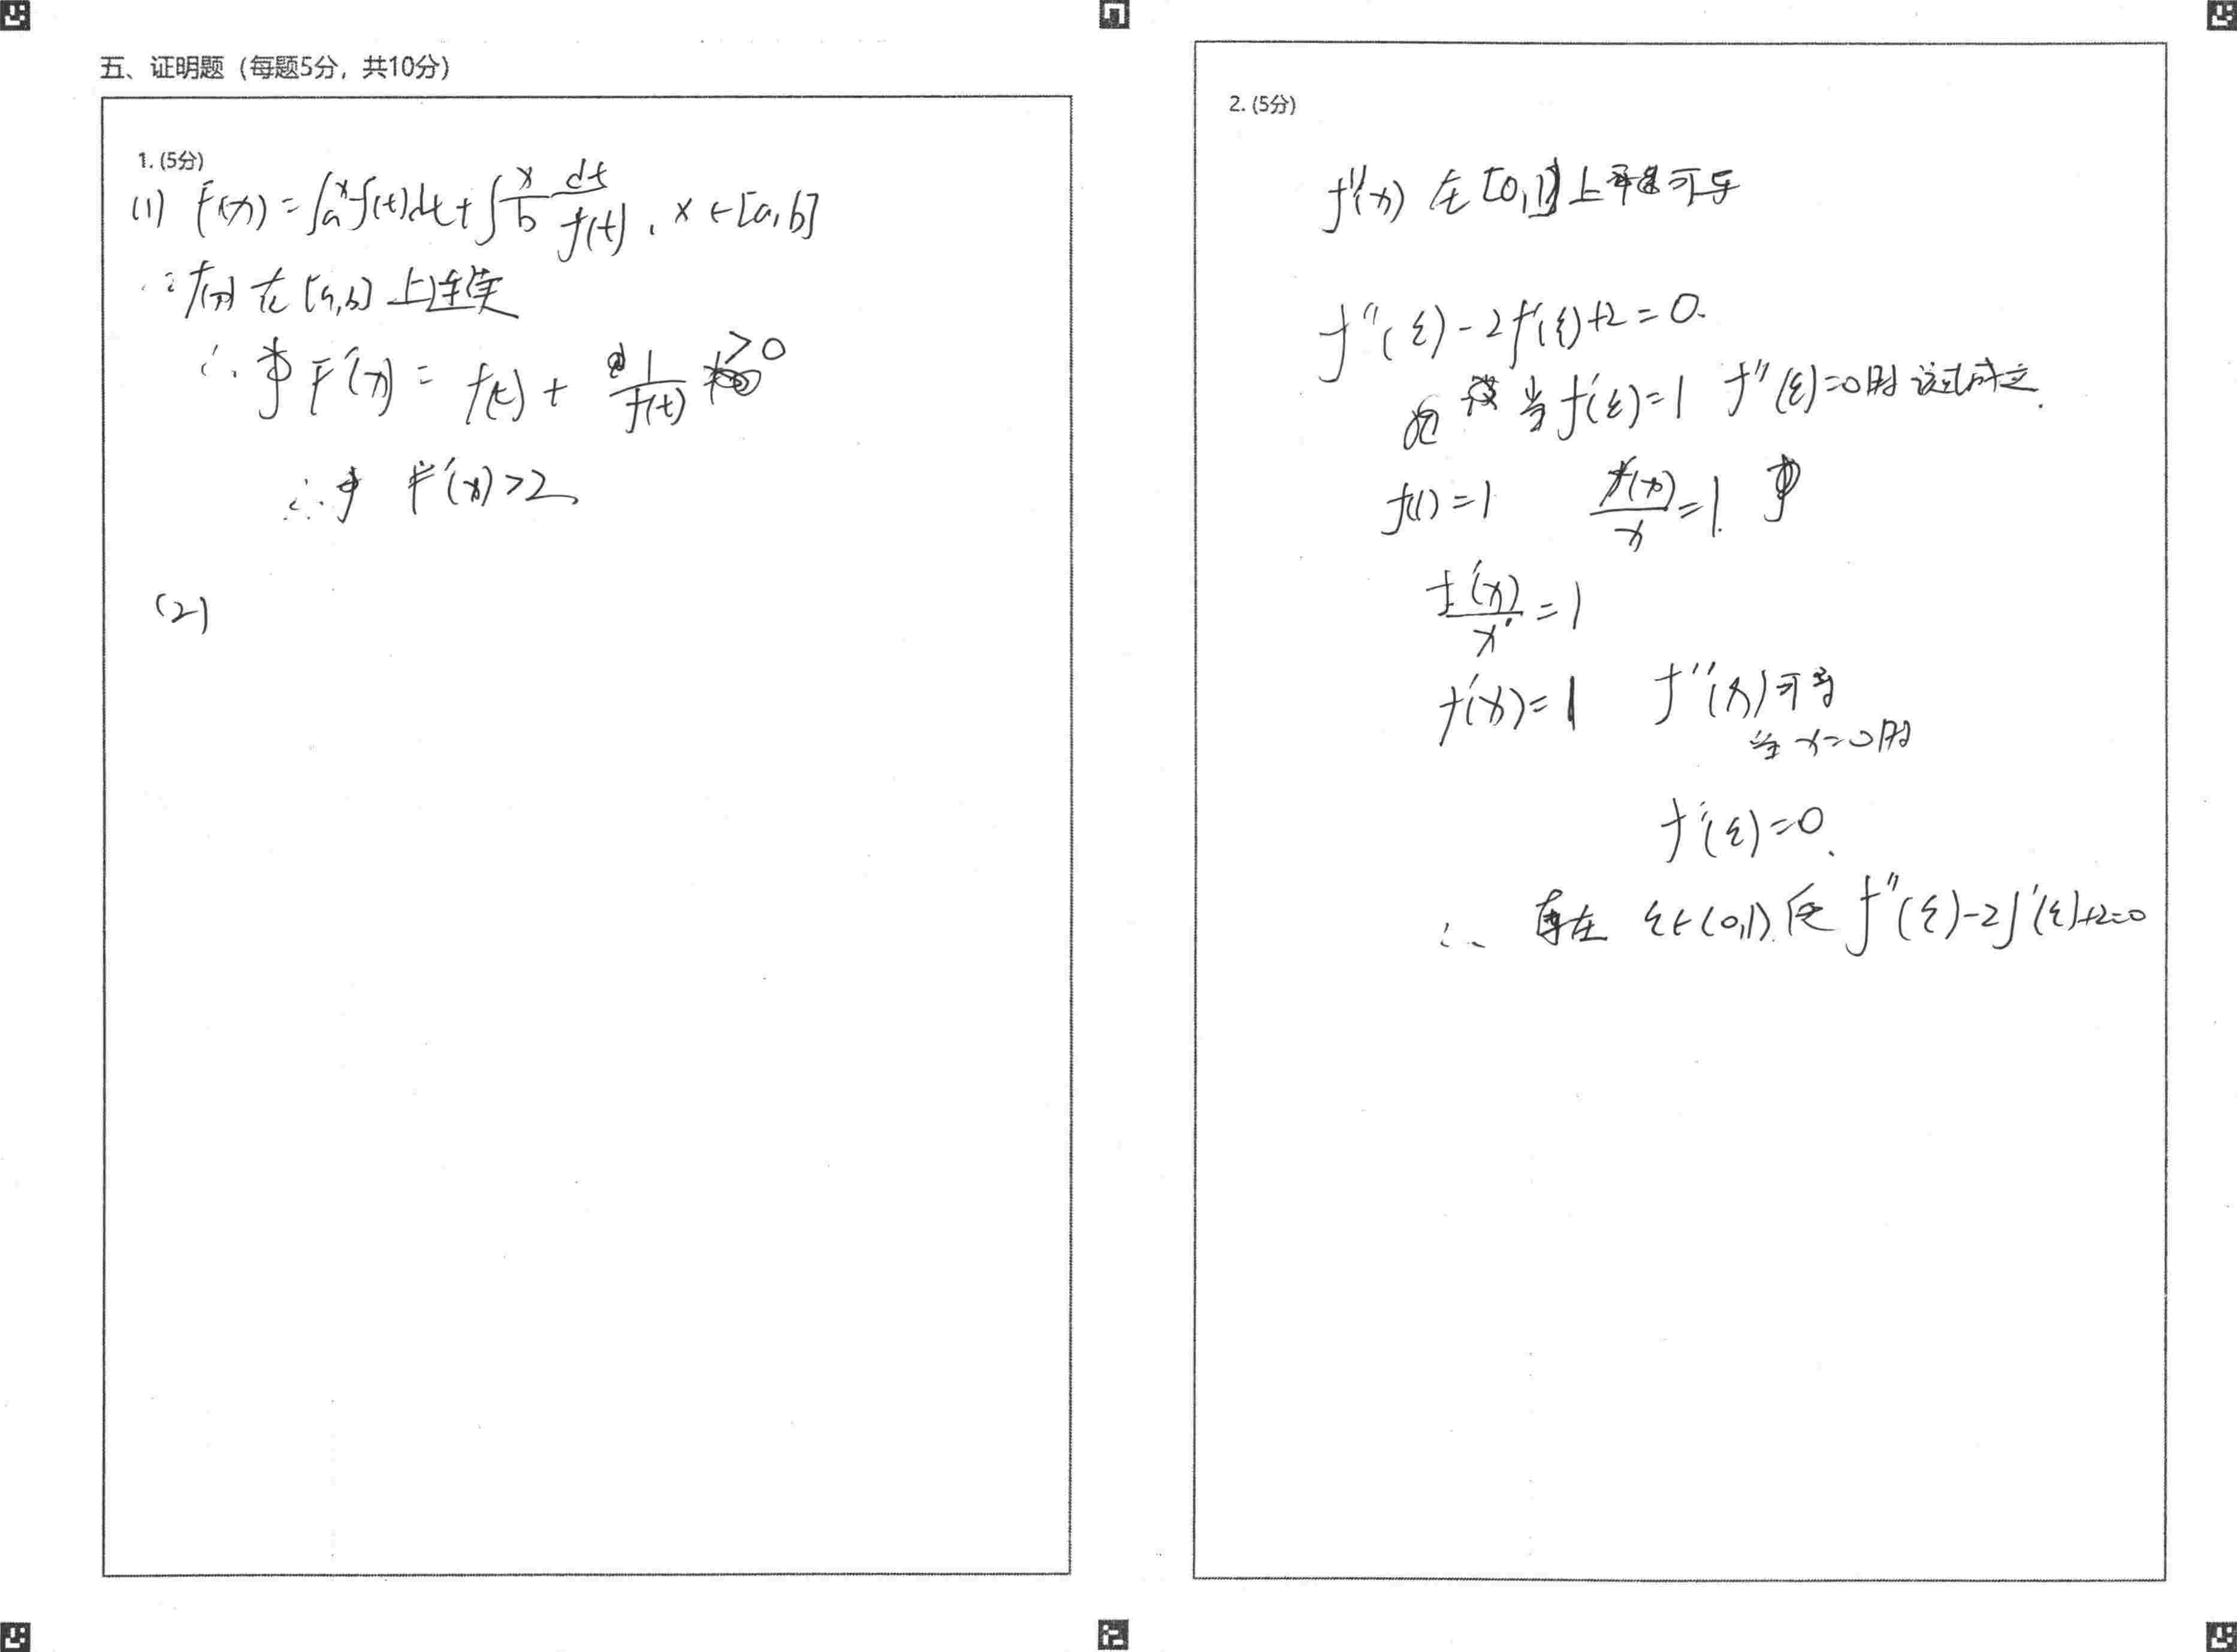 五、证明题（每题5分，共10分）
1. (5分)
(1) F(x) = ∫ₐˣ f(t)dt + ∫_b^x dt/f(t), x∈[a,b]
∵ f(x) 在 [a,b] 上连续
∴ F'(x) = f(t) + 1/f(t) >0
∴ F'(x) >2
(2)
2. (5分)
f''(x) 在 [0,1] 上 可导
f''(ξ) - 2f'(ξ)+2 = 0.
当 f'(ξ) = 1 f''(ξ) =0时 该式成立.
f(1) = 1 f(x)/x = 1
f'(x)/x' = 1
f'(x) = 1 f''(x) 可导
当 x=0时
f'(ξ) =0.
∴ 存在 ξ∈(0,1) 使 f''(ξ)-2f'(ξ)+2=0